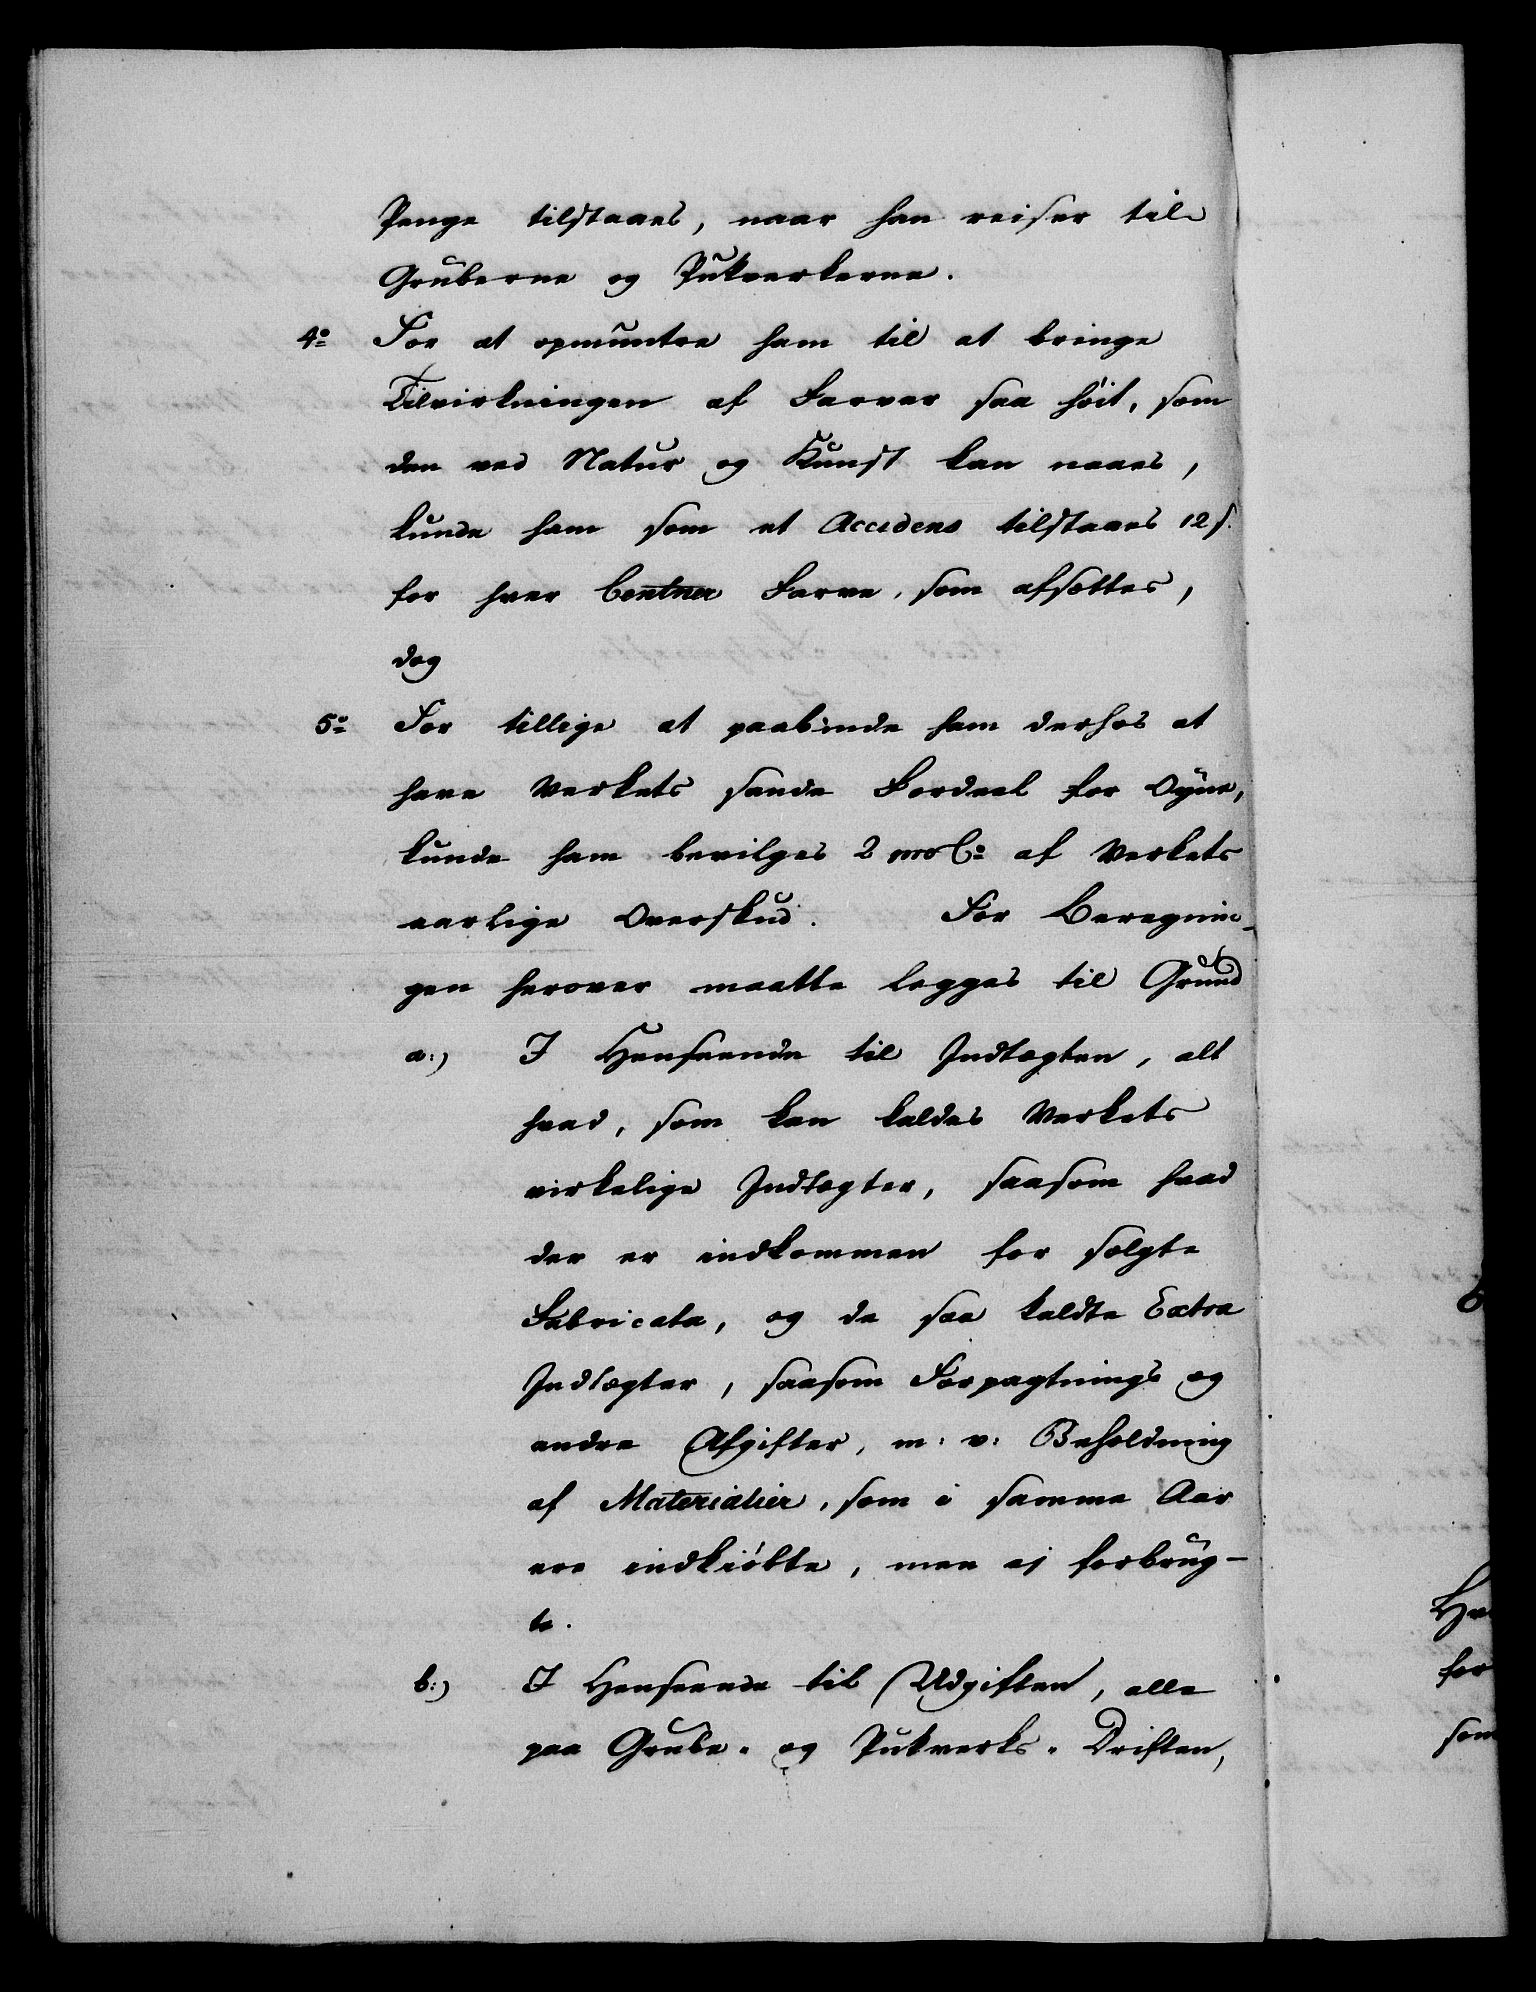 Penge tilstaaes, naar han reiser til
Gruberne og Pukverkerne.
4o For at opmuntre ham til at bringe
Tilvirkningen af Farver saa höit, som
den ved Natur og Kunst kan naaes,
kunde ham som et Accidens tilstaaes 12 s.
for hver Centner Farve, som afsættes,
dog
5o For tillige at paabinde ham derhos at
have Verkets sande Fordeel for Øyne,
kunde ham bevilges 2 pro Co af Verkets
aarlige Overskud. For Beregnin-
gen herover maatte legges til Grund
a:) I Henseende til Indtægten, alt
hvad, som kan kaldes Verkets
virkelige Indtægter, saasom hvad
der er indkommen for solgte
Fabricata, og de saa kaldte Extra
Indtægter, saasom Forpagtnings og
andre Afgifter, m: v: Beholdning
af Materialier, som i samme Aar
ere indkiöbte, men ej forbrug-
te.
b:) I Henseende til Udgiften, alle
paa Grube- og Pukverks-Driften,
Hv
for
som